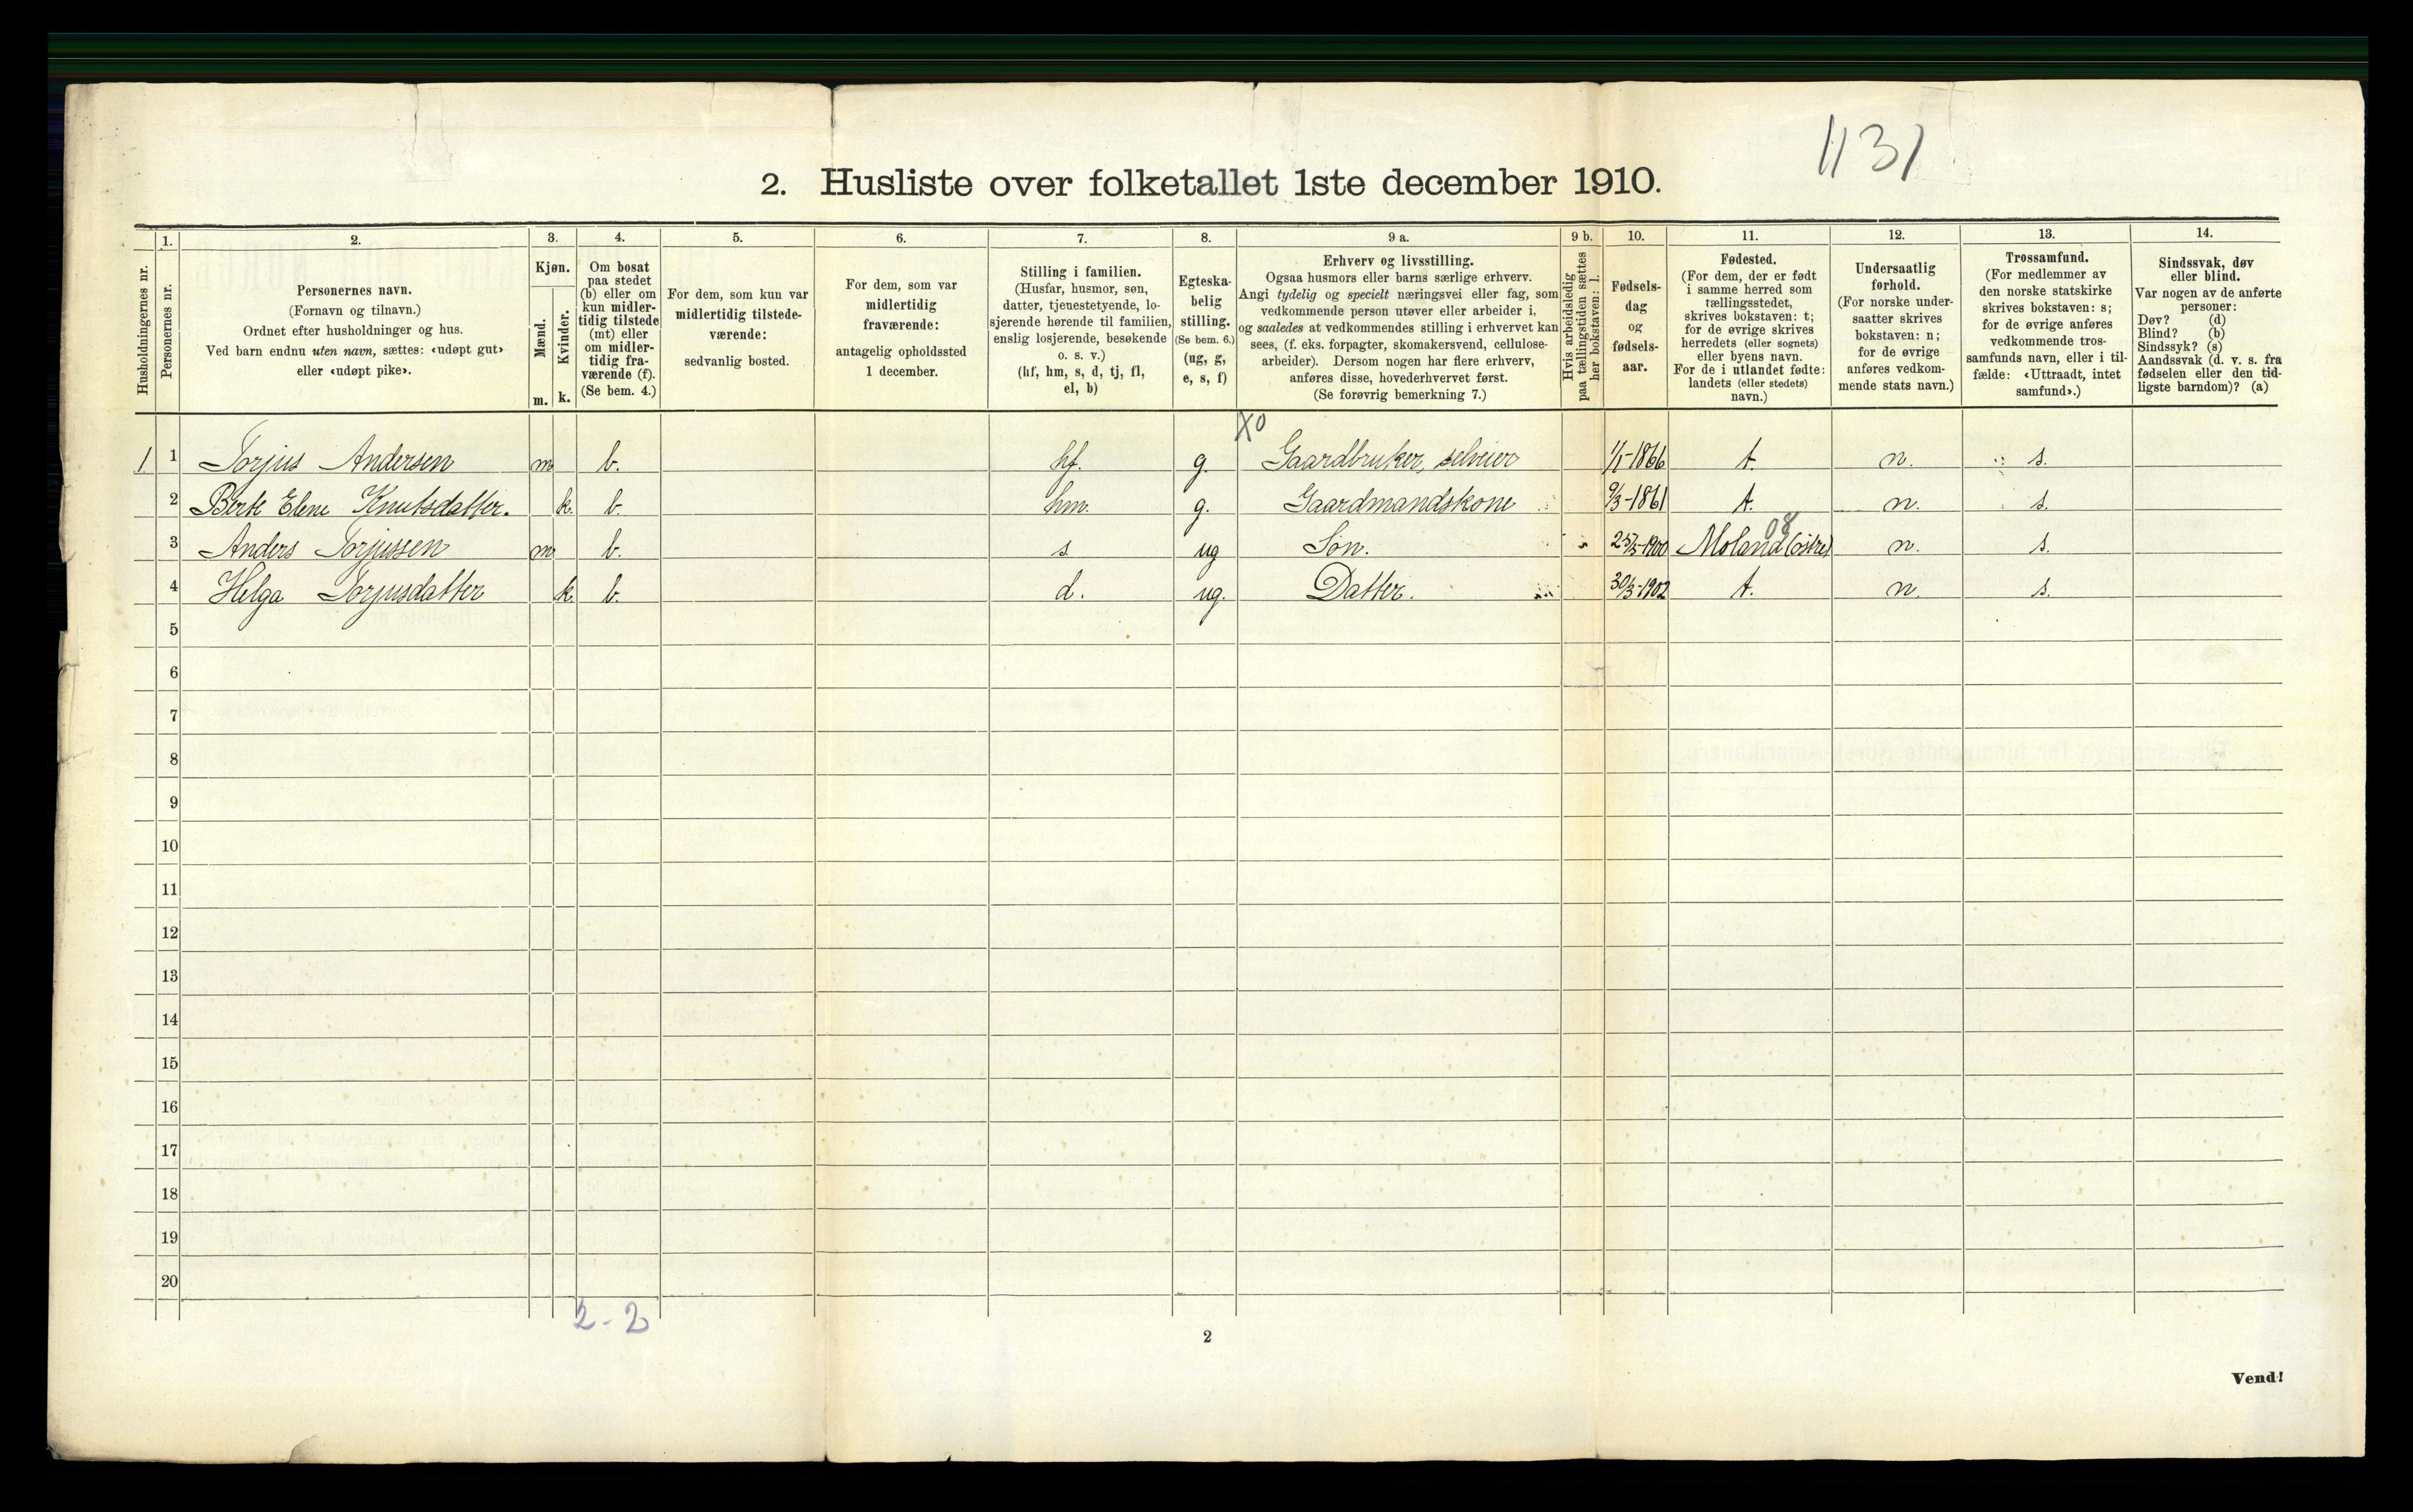 1131
2. Husliste over folketallet 1ste december 1910.
Husholdningernes nr.
1.
Personernes nr.
2.
Personernes navn.
(Fornavn og tilnavn.)
Ordnet efter husholdninger og hus.
Ved barn endnu uten navn, sættes: «udøpt gut»
eller «udøpt pike».
3.
Kjøn.
Mænd.
Kvinder.
m. k.
4.
Om bosat
paa stedet
(b) eller om
kun midler-
tidig tilstede
(mt) eller
om midler-
tidig fra-
værende (f).
(Se bem. 4.)
5.
For dem, som kun var
midlertidig tilstede-
værende:
sedvanlig bosted.
6.
For dem, som var
midlertidig
fraværende:
antagelig opholdssted
1 december.
7.
Stilling i familien.
(Husfar, husmor, søn,
datter, tjenestetyende, lo-
sjerende hørende til familien,
enslig losjerende, besøkende
o. s. v.)
(hf, hm, s, d, tj, fl,
el, b)
8.
Egteska-
belig
stilling.
(Se bem. 6.)
(ug, g,
e, s, f)
9 a.
Erhverv og livsstilling.
Ogsaa husmors eller barns særlige erhverv.
Angi tydelig og specielt næringsvei eller fag, som
vedkommende person utøver eller arbeider i,
og saaledes at vedkommendes stilling i erhvervet kan
sees, (f. eks. forpagter, skomakersvend, cellulose-
arbeider). Dersom nogen har flere erhverv,
anføres disse, hovederhvervet først.
(Se forøvrig bemerkning 7.)
9 b.
Hvis arbeidsledig
paa tællingstiden sættes
her bokstaven: l.
10.
Fødsels-
dag
og
fødsels-
aar.
11.
Fødested.
(For dem, der er født
i samme herred som
tællingsstedet,
skrives bokstaven: t;
for de øvrige skrives
herredets (eller sognets)
eller byens navn.
For de i utlandet fødte:
landets (eller stedets)
navn.)
12.
Undersaatlig
forhold.
(For norske under-
saatter skrives
bokstaven: n;
for de øvrige
anføres vedkom-
mende stats navn.)
13.
Trossamfund.
(For medlemmer av
den norske statskirke
skrives bokstaven: s;
for de øvrige anføres
vedkommende tros-
samfunds navn, eller i til-
fælde: «Uttraadt, intet
samfund».)
14.
Sindssvak, døv
eller blind.
Var nogen av de anførte
personer:
Døv? (d)
Blind? (b)
Sindssyk? (s)
Aandssvak (d. v. s. fra
fødselen eller den tid-
ligste barndom)? (a)
X0
1 1 Torjus Andersen m b. hf. g. Gaardbruker, selveier 1/1-1866 t. n. s.
2 Berte Elene Knutsdatter. k. b. hm. g. Gaardmandskone 9/3-1861 t. n. s.
08
3 Anders Torjussen m b. s. ug Søn. 25/5-1900 Moland (östre) n. s.
4 Helga Torjusdatter k b. d. ug. Datter. 30/3-1902 t. n. s.
5
6
7
8
9
10
11
12
13
14
15
16
17
18
19
20
2-2
2
Vend!